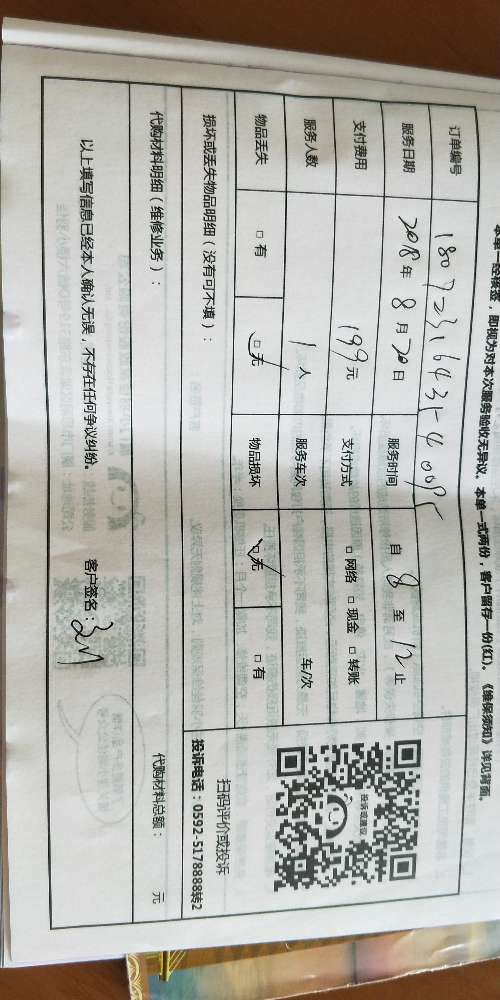 本单一经核签，即视为对本次服务验收无异议。本单一式两份，客户留存一份(红)。《维保须知》详见背面。
订单编号 180723164354009
服务日期 2018年8月20日 服务时间 自8至12止
支付费用 199元 支付方式 □网络 □现金 □转账
服务人数 1人 服务车次 车/次
物品丢失 □有 □无 物品损坏 □无 □有
投诉或建议
扫码评价或投诉
投诉电话：0592-5178888转2
损坏或丢失物品明细（没有可不填）：
代购材料明细（维修业务）： 代购材料总额： 元
以上填写信息已经本人确认无误，不存在任何争议纠纷。 客户签名：